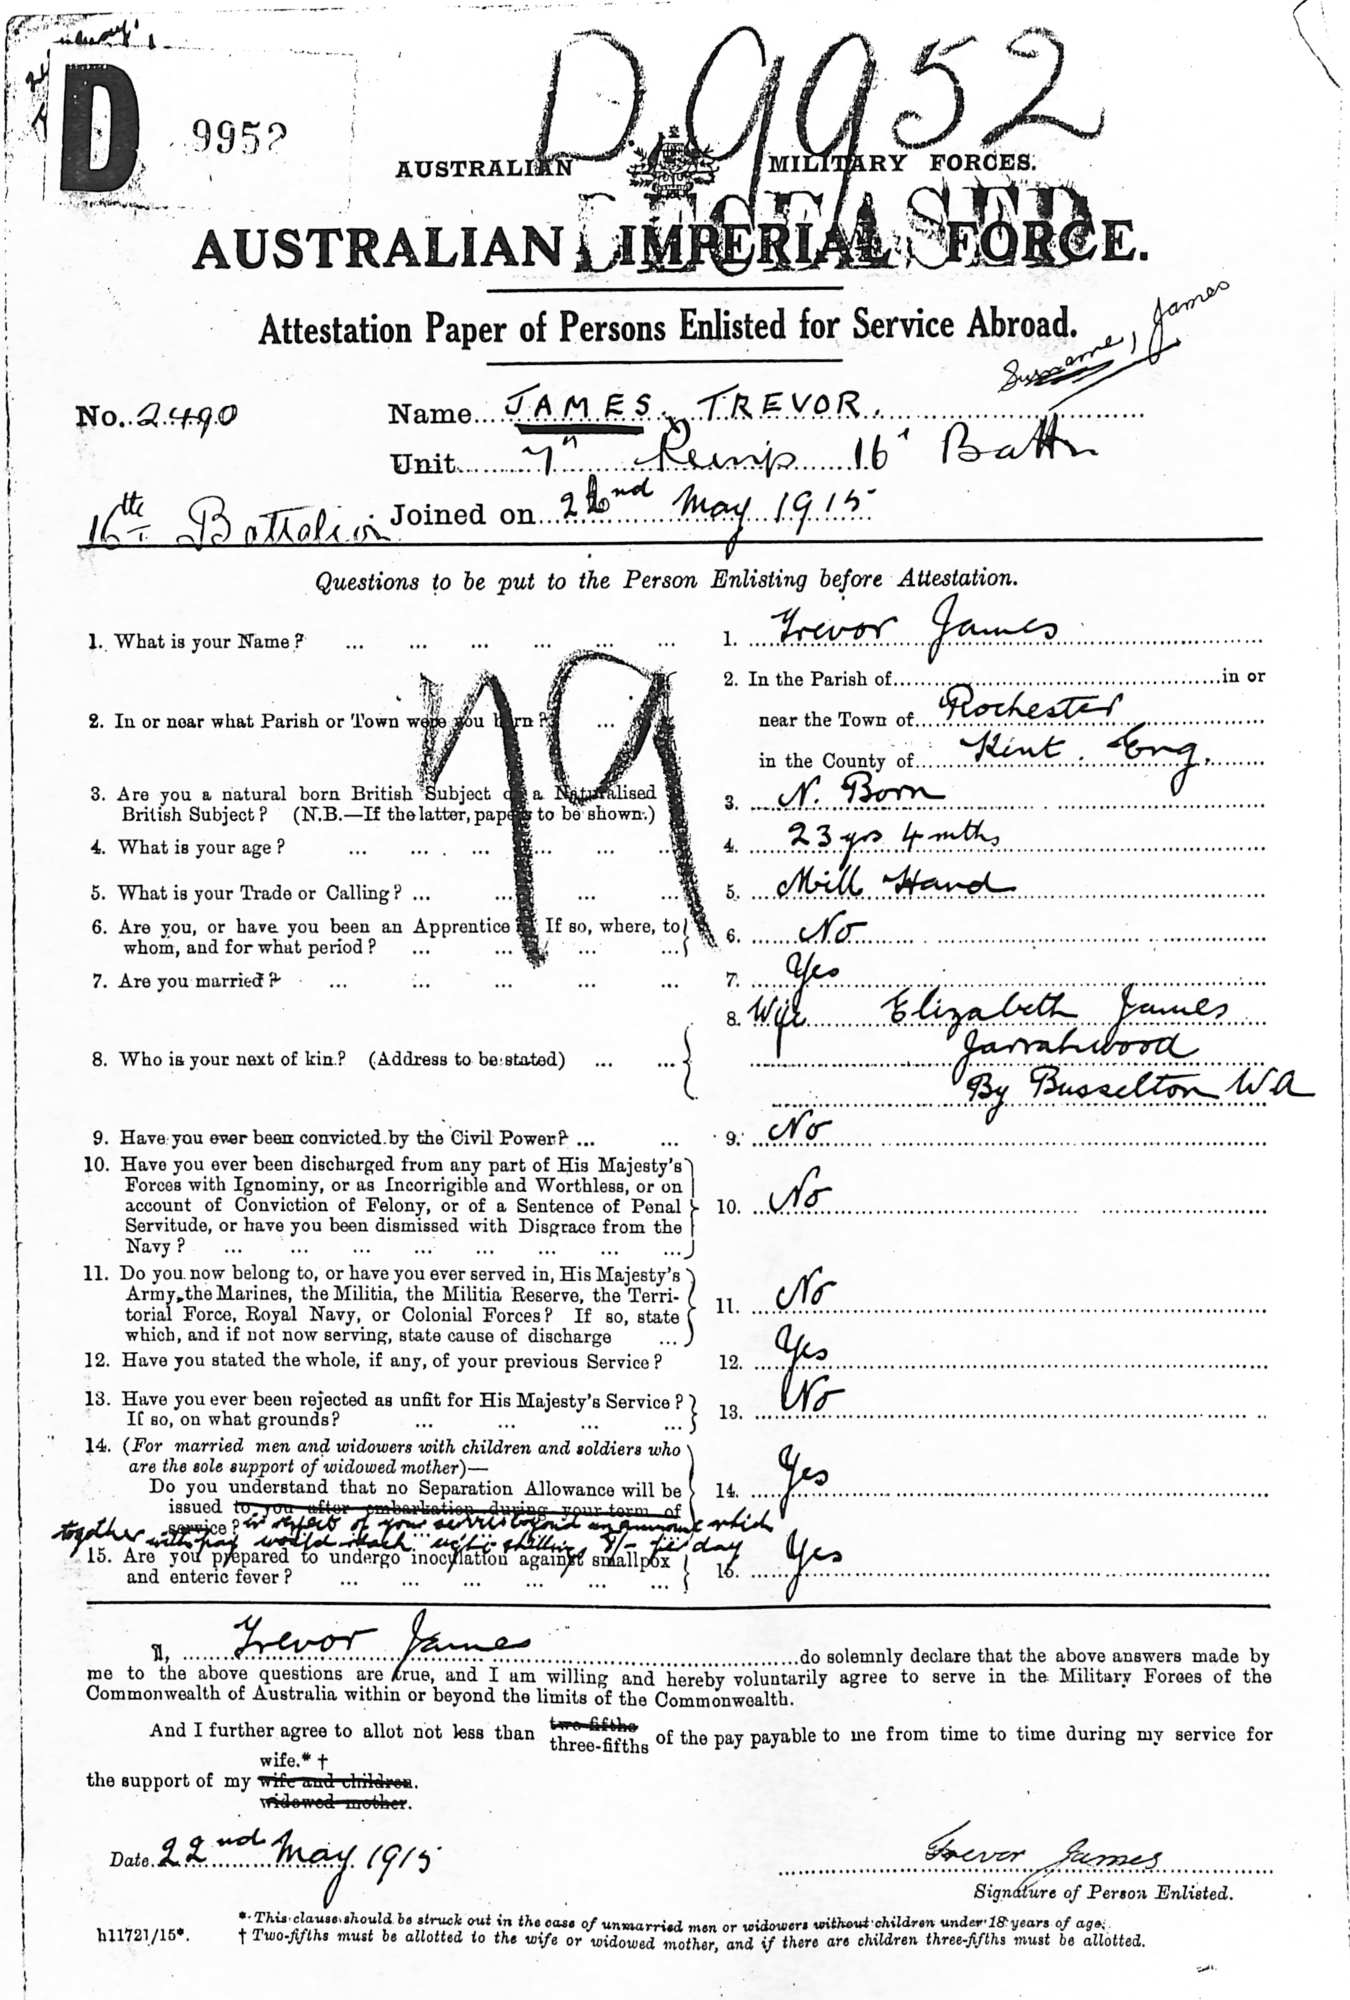 D 9952
D 9952
AUSTRALIAN MILITARY FORCES.
DECEASED
AUSTRALIAN IMPERIAL FORCE.
Attestation Paper of Persons Enlisted for Service Abroad.
Surname, James
No. 2490 Name JAMES, TREVOR.
Unit 7th Reinfs 16th Battn
16th Battalion Joined on 22nd May 1915
Questions to be put to the Person Enlisting before Attestation.
1. What is your Name? ... ... ... ... ... ... 1. Trevor James
2. In the Parish of in or
2. In or near what Parish or Town were you born? ... near the Town of Rochester
in the County of Kent. Eng.
79
3. Are you a natural born British Subject or a Naturalised
British Subject? (N.B.—If the latter, papers to be shown.) 3. N. Born
4. What is your age? ... ... ... ... ... ... 4. 23 yrs 4 mths
5. What is your Trade or Calling? ... ... ... ... 5. Mill Hand
6. Are you, or have you been an Apprentice? If so, where, to
whom, and for what period? ... ... ... ... 6. No
7. Are you married? ... ... ... ... ... 7. Yes
8. Wife Elizabeth James
8. Who is your next of kin? (Address to be stated) ... ... Jarrahwood
By Busselton WA
9. Have you ever been convicted by the Civil Power? ... ... 9. No
10. Have you ever been discharged from any part of His Majesty's
Forces with Ignominy, or as Incorrigible and Worthless, or on
account of Conviction of Felony, or of a Sentence of Penal 10. No
Servitude, or have you been dismissed with Disgrace from the
Navy? ... ... ... ... ... ... ... ...
11. Do you now belong to, or have you ever served in, His Majesty's
Army, the Marines, the Militia, the Militia Reserve, the Terri-
torial Force, Royal Navy, or Colonial Forces? If so, state 11. No
which, and if not now serving, state cause of discharge ...
12. Have you stated the whole, if any, of your previous Service? 12. Yes
13. Have you ever been rejected as unfit for His Majesty's Service?
If so, on what grounds? ... ... ... ... 13. No
14. (For married men and widowers with children and soldiers who
are the sole support of widowed mother)—
Do you understand that no Separation Allowance will be 14. Yes
issued to you after embarkation during your term of
service? in respect of your service beyond an amount which
together with pay would reach eight shillings 8/- per day
15. Are you prepared to undergo inoculation against smallpox
and enteric fever? ... ... ... ... ... ... 15. Yes
I, Trevor James do solemnly declare that the above answers made by
me to the above questions are true, and I am willing and hereby voluntarily agree to serve in the Military Forces of the
Commonwealth of Australia within or beyond the limits of the Commonwealth.
And I further agree to allot not less than two-fifths three-fifths of the pay payable to me from time to time during my service for
wife.* †
the support of my wife and children.
widowed mother.
Date 22nd May 1915 Trevor James
Signature of Person Enlisted.
*This clause should be struck out in the case of unmarried men or widowers without children under 18 years of age.
h11721/15*. † Two-fifths must be allotted to the wife or widowed mother, and if there are children three-fifths must be allotted.